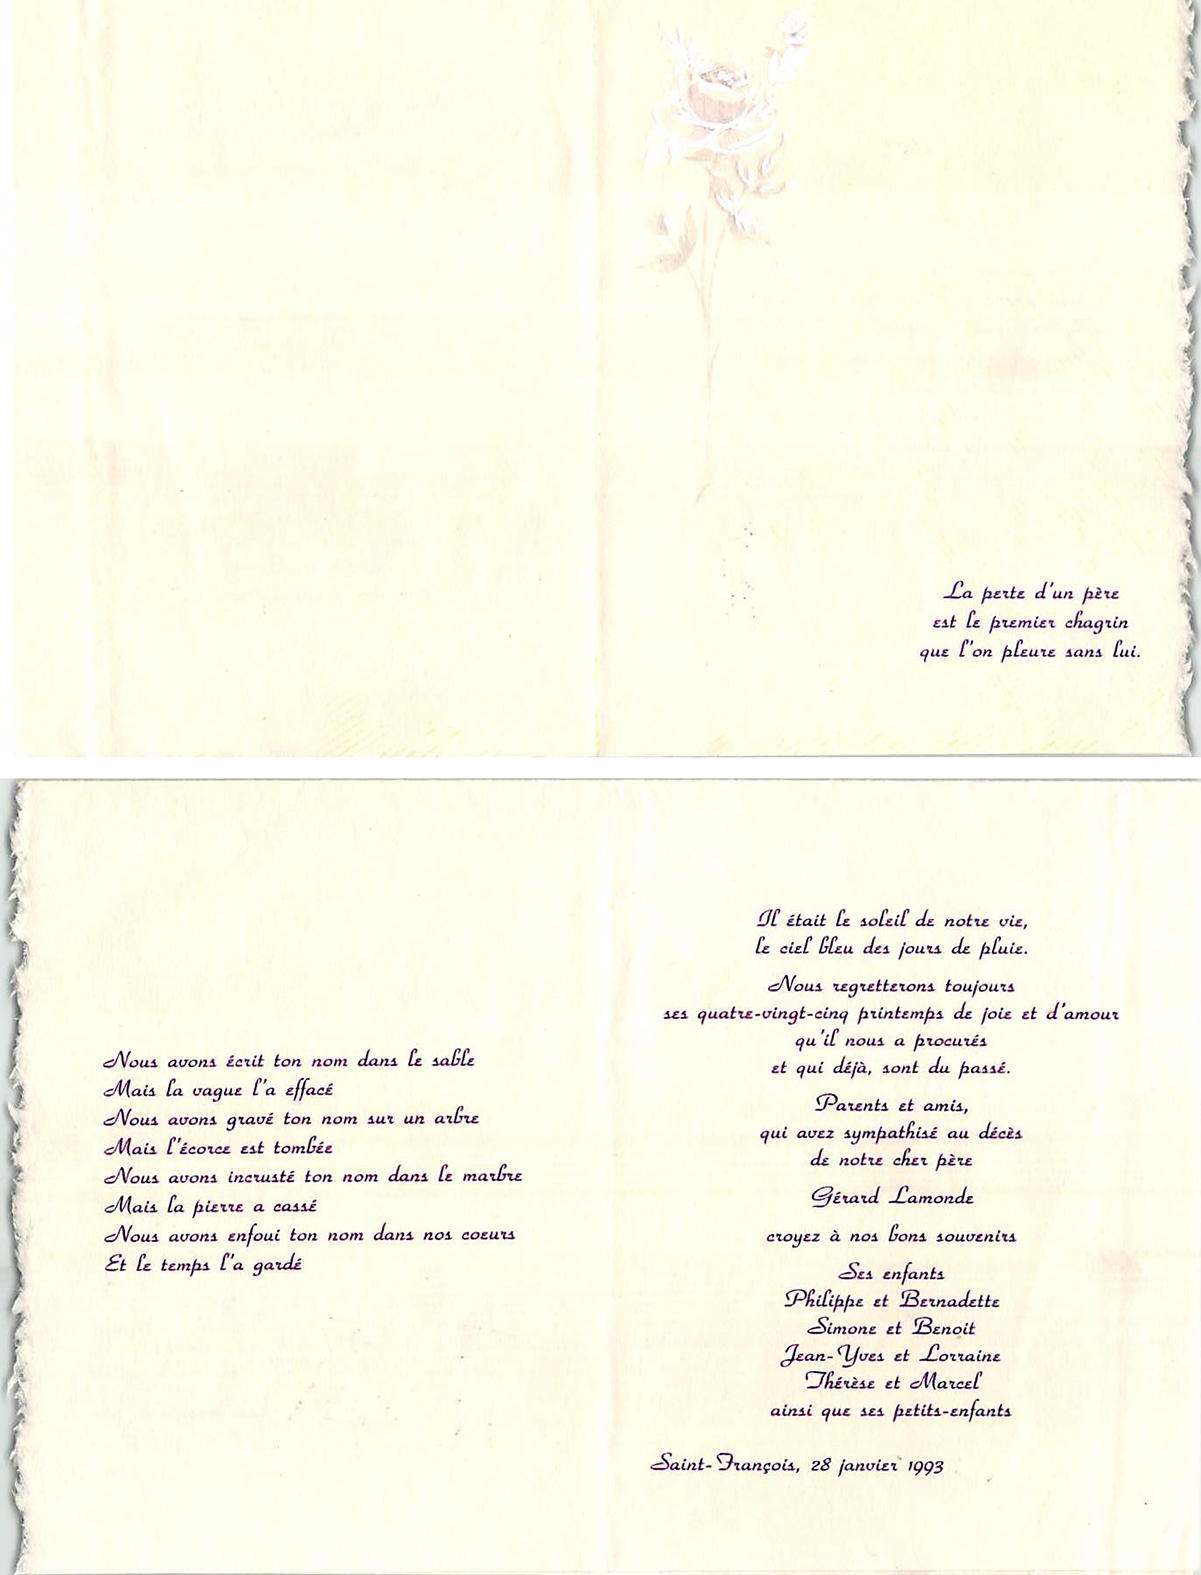 La perte d'un père
est le premier chagrin
que l'on pleure sans lui.
Nous avons écrit ton nom dans le sable
Mais la vague l'a effacé
Nous avons gravé ton nom sur un arbre
Mais l'écorce est tombée
Nous avons incrusté ton nom dans le marbre
Mais la pierre a cassé
Nous avons enfoui ton nom dans nos coeurs
Et le temps l'a gardé
Il était le soleil de notre vie,
le ciel bleu des jours de pluie.
Nous regretterons toujours
ses quatre-vingt-cinq printemps de joie et d'amour
qu'il nous a procurés
et qui déjà, sont du passé.
Parents et amis,
qui avez sympathisé au décès
de notre cher père
Gérard Lamonde
croyez à nos bons souvenirs
Ses enfants
Philippe et Bernadette
Simone et Benoit
Jean-Yves et Lorraine
Thérèse et Marcel
ainsi que ses petits-enfants
Saint-François, 28 janvier 1993